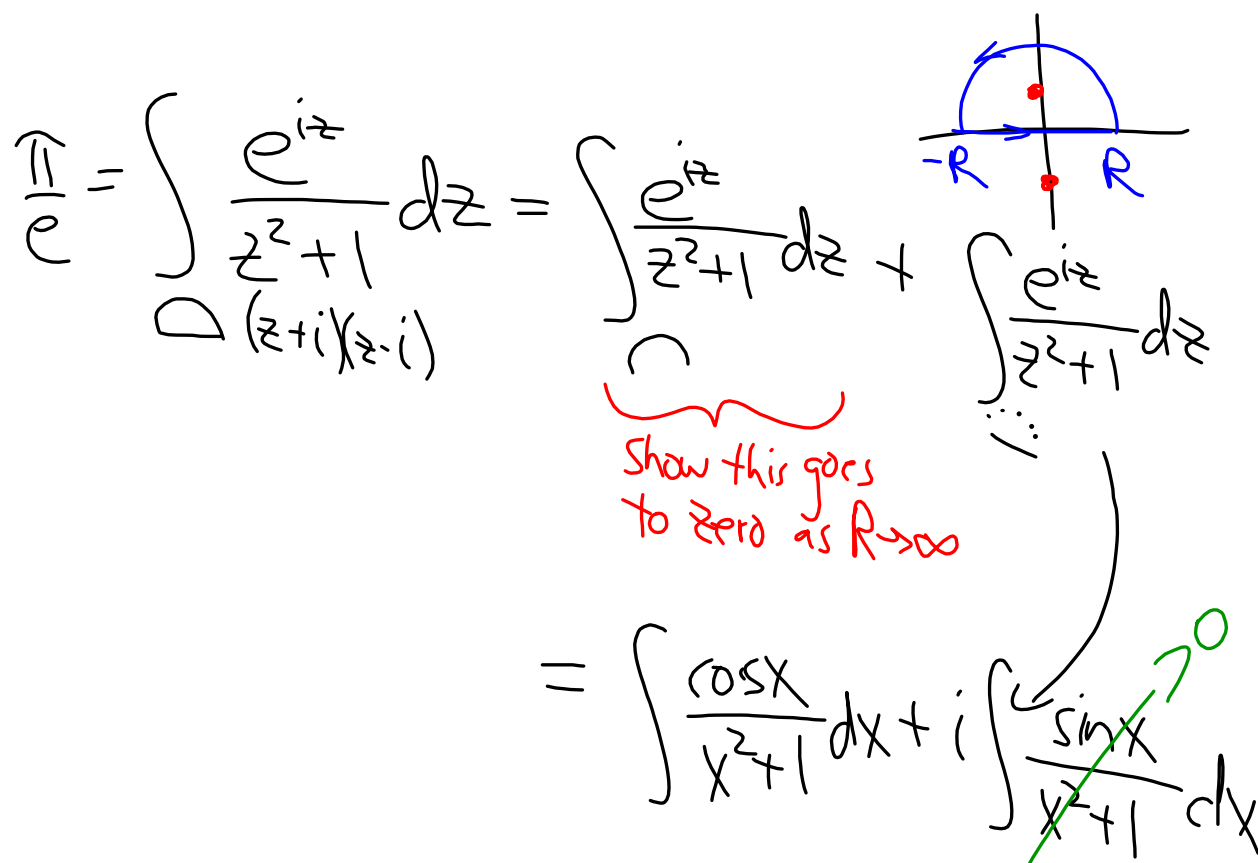 -R R
π/e = ∫ e^{iz}/(z²+1) dz = ∫ e^{iz}/(z²+1) dz + ∫ e^{iz}/(z²+1) dz
(z+i)(z-i)
Show this goes
to zero as R→∞
= ∫ cosx/(x²+1) dx + i ∫ sinx/(x²+1) dx
0